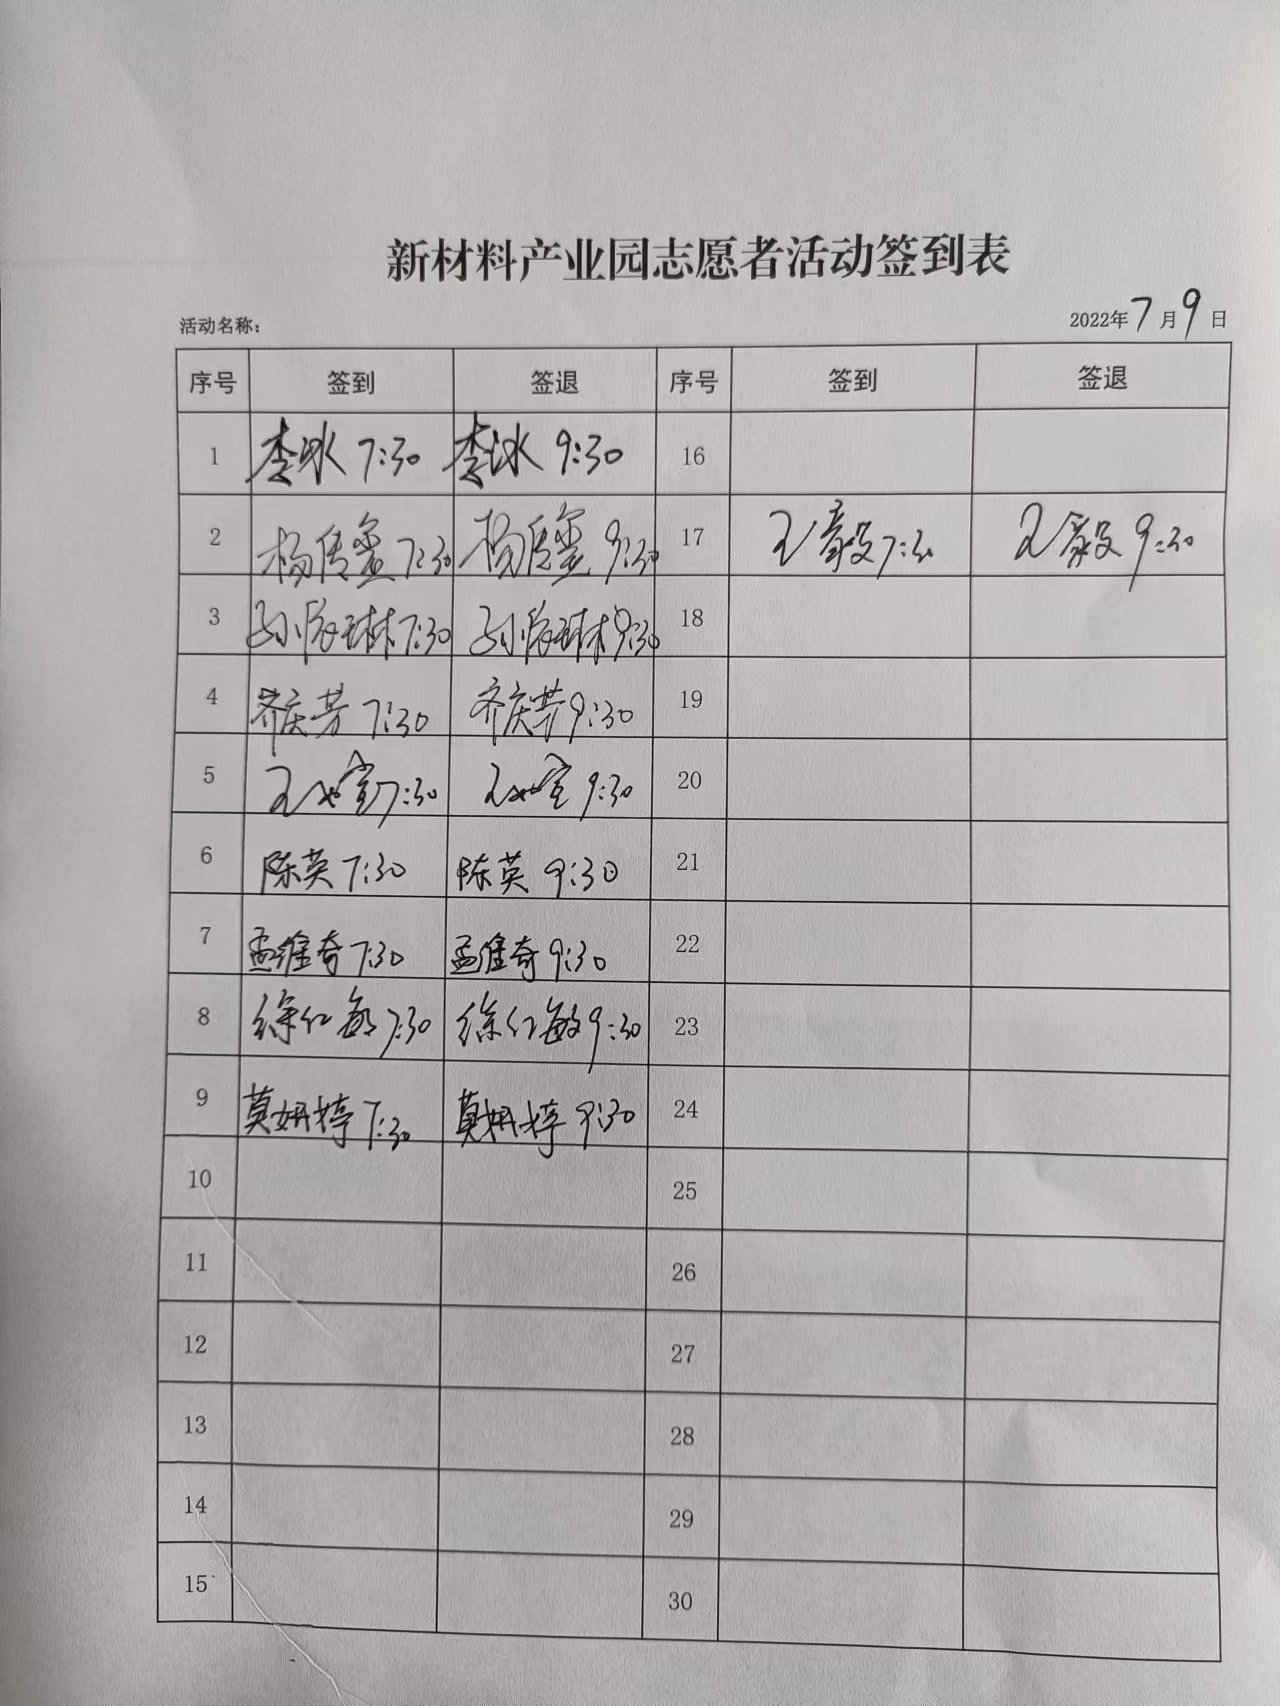 新材料产业园志愿者活动签到表
活动名称： 2022年7月9日
序号 签到 签退 序号 签到 签退
1 李冰 7:30 李冰 9:30 16
2 杨传玺 7:30 杨传玺 9:30 17 王毅 7:30 王毅 9:30
3 孙陈琳 7:30 孙陈琳 9:30 18
4 齐庆芳 7:30 齐庆芳 9:30 19
5 7:30 9:30 20
6 陈英 7:30 陈英 9:30 21
7 孟维奇 7:30 孟维奇 9:30 22
8 徐红敏 7:30 徐红敏 9:30 23
9 莫妍婷 7:30 莫妍婷 9:30 24
10 25
11 26
12 27
13 28
14 29
15 30